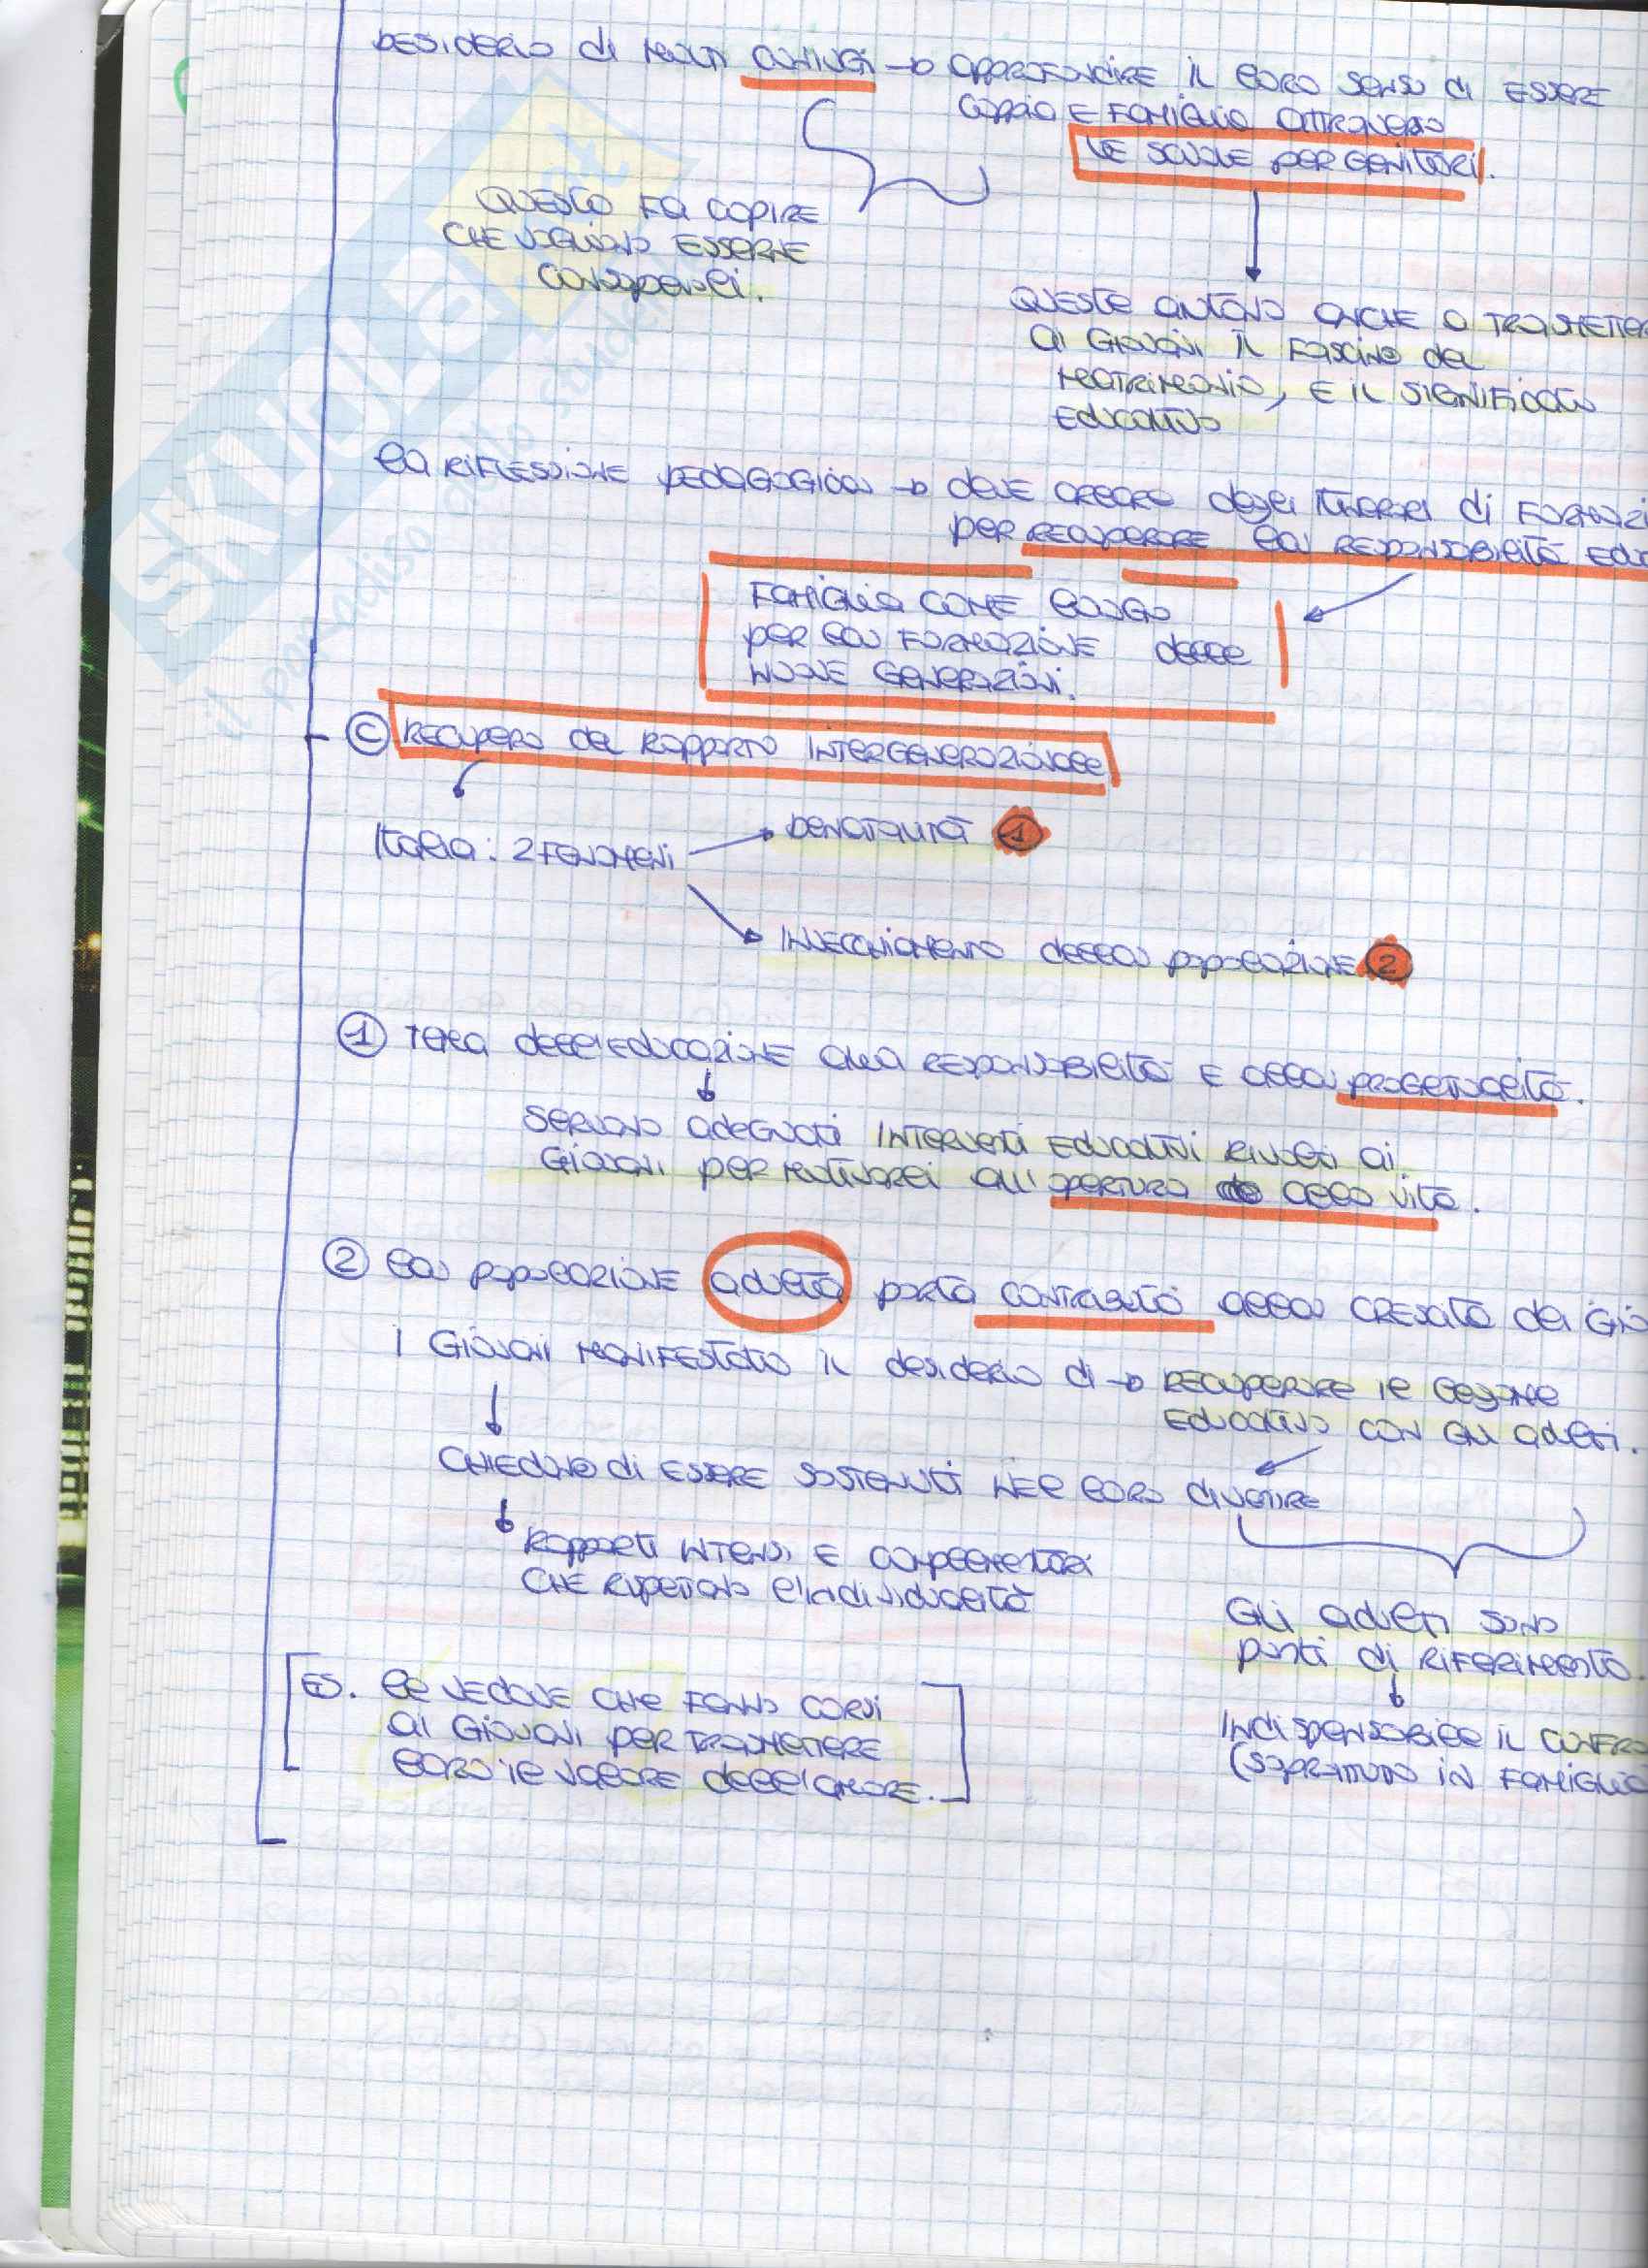 DESIDERIO di MOLTI CONIUGI → APPROFONDIRE IL LORO SENSO di ESSERE
COPPIA E FAMIGLIA ATTRAVERSO
LE SCUOLE PER GENITORI.
QUESTO FA CAPIRE
CHE VOGLIONO ESSERNE
CONSAPEVOLI.
QUESTE AIUTANO ANCHE A TRASMETTER
AI GIOVANI IL FASCINO del
MATRIMONIO, E IL SIGNIFICATO
EDUCATIVO
LA RIFLESSIONE PEDAGOGICA → DEVE CREARE degli ITINERARI di FORMAZI
PER RECUPERARE LA RESPONSABILITÀ EDU
FAMIGLIA COME LUOGO
PER LA FORMAZIONE delle
NUOVE GENERAZIONI.
C RECUPERO DEL RAPPORTO INTERGENERAZIONALE
ITALIA: 2 FENOMENI
DENATALITÀ 1
INVECCHIAMENTO DELLA POPOLAZIONE 2
1 TEMA DELL'EDUCAZIONE ALLA RESPONSABILITÀ E ALLA PROGETTUALITÀ.
SERVONO ADEGUATI INTERVENTI EDUCATIVI RIVOLTI AI
GIOVANI PER MOTIVARLI ALL'APERTURA ALLA VITA.
2 LA POPOLAZIONE ADULTA PORTA CONTRIBUTO ALLA CRESCITA DEI GIO
I GIOVANI MANIFESTATO IL DESIDERIO DI → RECUPERARE IL LEGAME
EDUCATIVO CON GLI ADULTI.
CHIEDONO di ESSERE SOSTENUTI NEL LORO DIVENIRE
RAPPORTI INTENSI E COMPLEMENTARI
CHE RISPETTANO L'INDIVIDUALITÀ
GLI ADULTI SONO
PUNTI DI RIFERIMENTO.
INDISPENSABILE IL CONFRO
(SOPRATTUTTO IN FAMIGLIA
ES. LE VEDOVE CHE FANNO CORSI
AI GIOVANI PER TRASMETTERE
LORO IL VALORE DELL'AMORE.
SKUOLA.net
il paradiso dello studente